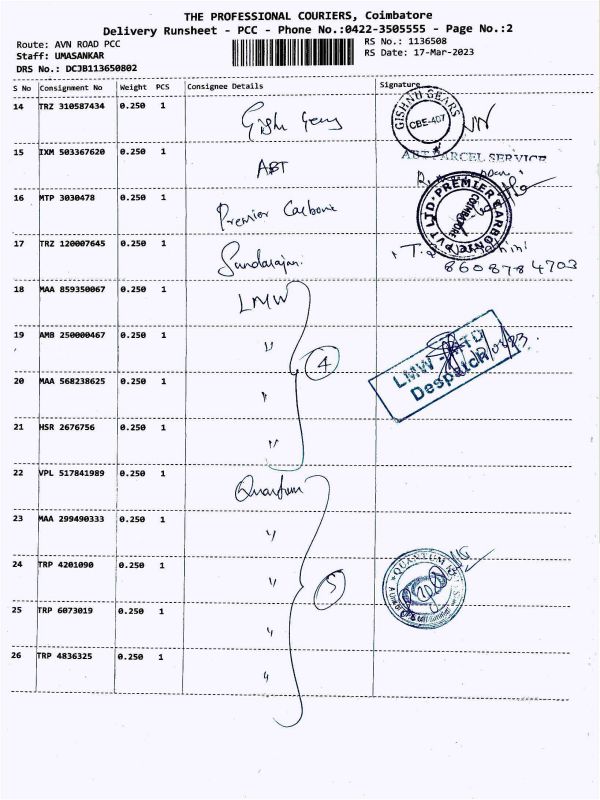 THE PROFESSIONAL COURIERS, Coimbatore
Delivery Runsheet - PCC - Phone No.:0422-3505555 - Page No.:2
Route: AVN ROAD PCC
RS No.: 1136508
Staff: UMASANKAR
RS Date: 17-Mar-2023
DRS No.: DCJB113650802
S No Consignment No Weight PCS Consignee Details Signature
14 TRZ 310587434 0.250 1 GISHNU GEARS CBE-407
15 IXM 503367620 0.250 1 ABT ABT PARCEL SERVICE
16 MTP 3030478 0.250 1 Premier Carbone PREMIER CARBONIC PVT LTD COIMBATORE
17 TRZ 120007645 0.250 1 Sundarajan 8608784703
18 MAA 859350067 0.250 1 LMW
19 AMB 250000467 0.250 1 " 4 LMW Despatch
20 MAA 568238625 0.250 1 "
21 HSR 2676756 0.250 1 "
22 VPL 517841989 0.250 1 Quantum
23 MAA 299490333 0.250 1 "
24 TRP 4201090 0.250 1 " 5 QUANTUM
25 TRP 6073019 0.250 1 "
26 TRP 4836325 0.250 1 "